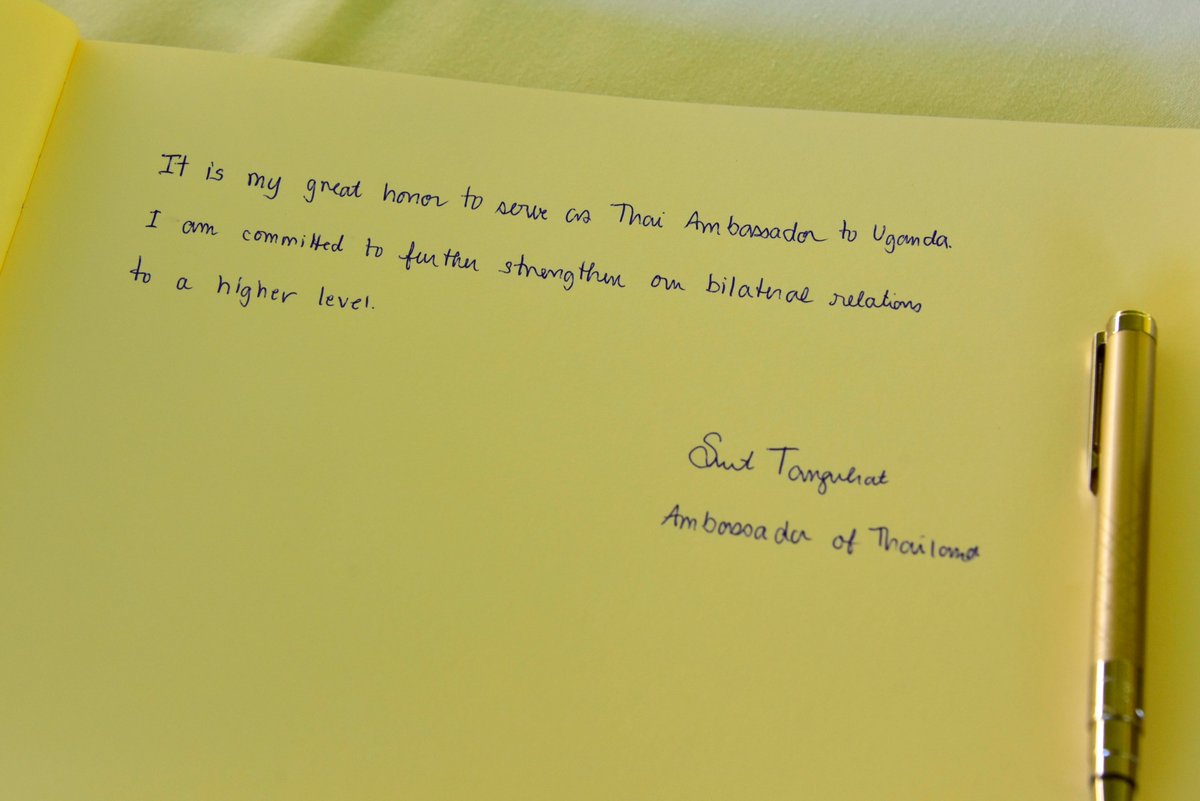 It is my great honor to serve as Thai Ambassador to Uganda.
I am committed to further strengthen our bilateral relations
to a higher level.
Ambassador of Thailand